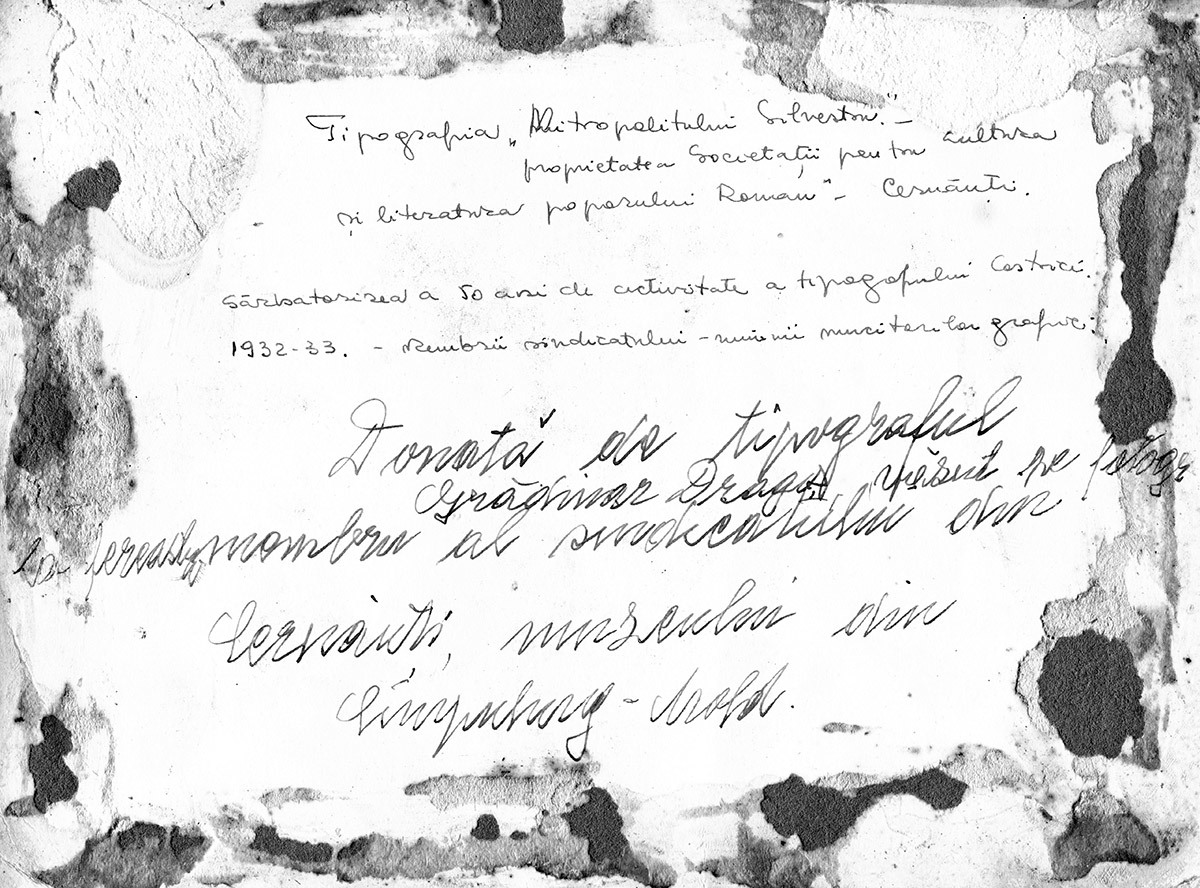 Tipografia „Mitropolitului Silvestru." –
proprietatea Societații pentru cultura
și literatura poporului Roman" – Cernăuți.
Sărbatorirea a 50 ani de activitate a tipografului
1932-33. – Membrii sindicatului – muncitorilor grafici.
Donată de tipograful
Grădinar Dragoș, văzut pe fotogr
membru al sindicatului din
Cernăuți, muzeului din
Cîmpulung – Mold.